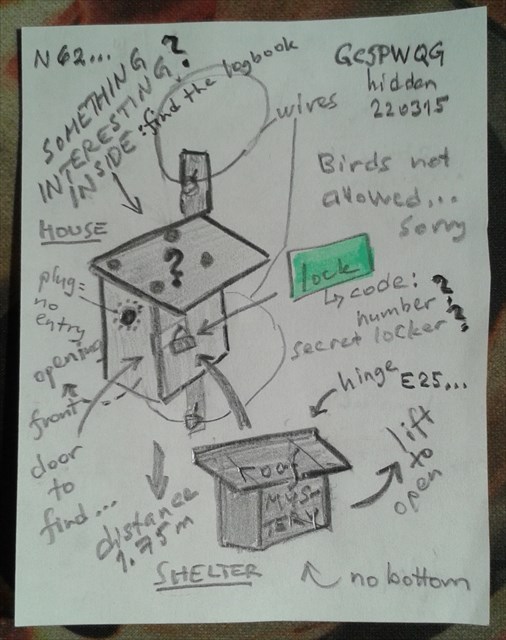 N 62...
SOMETHING
INTERESTING
INSIDE?
find the logbook
GC5PWQG
hidden
220315
wires
Birds not
allowed...
sorry
HOUSE
?
plug=
no
entry
lock
↳ code: ?
number?
secret locker?
opening
front
door
to
find...
hinge
E25...
distance
1.75m
roof
MYS-
TERY
lift
to
open
SHELTER
no bottom